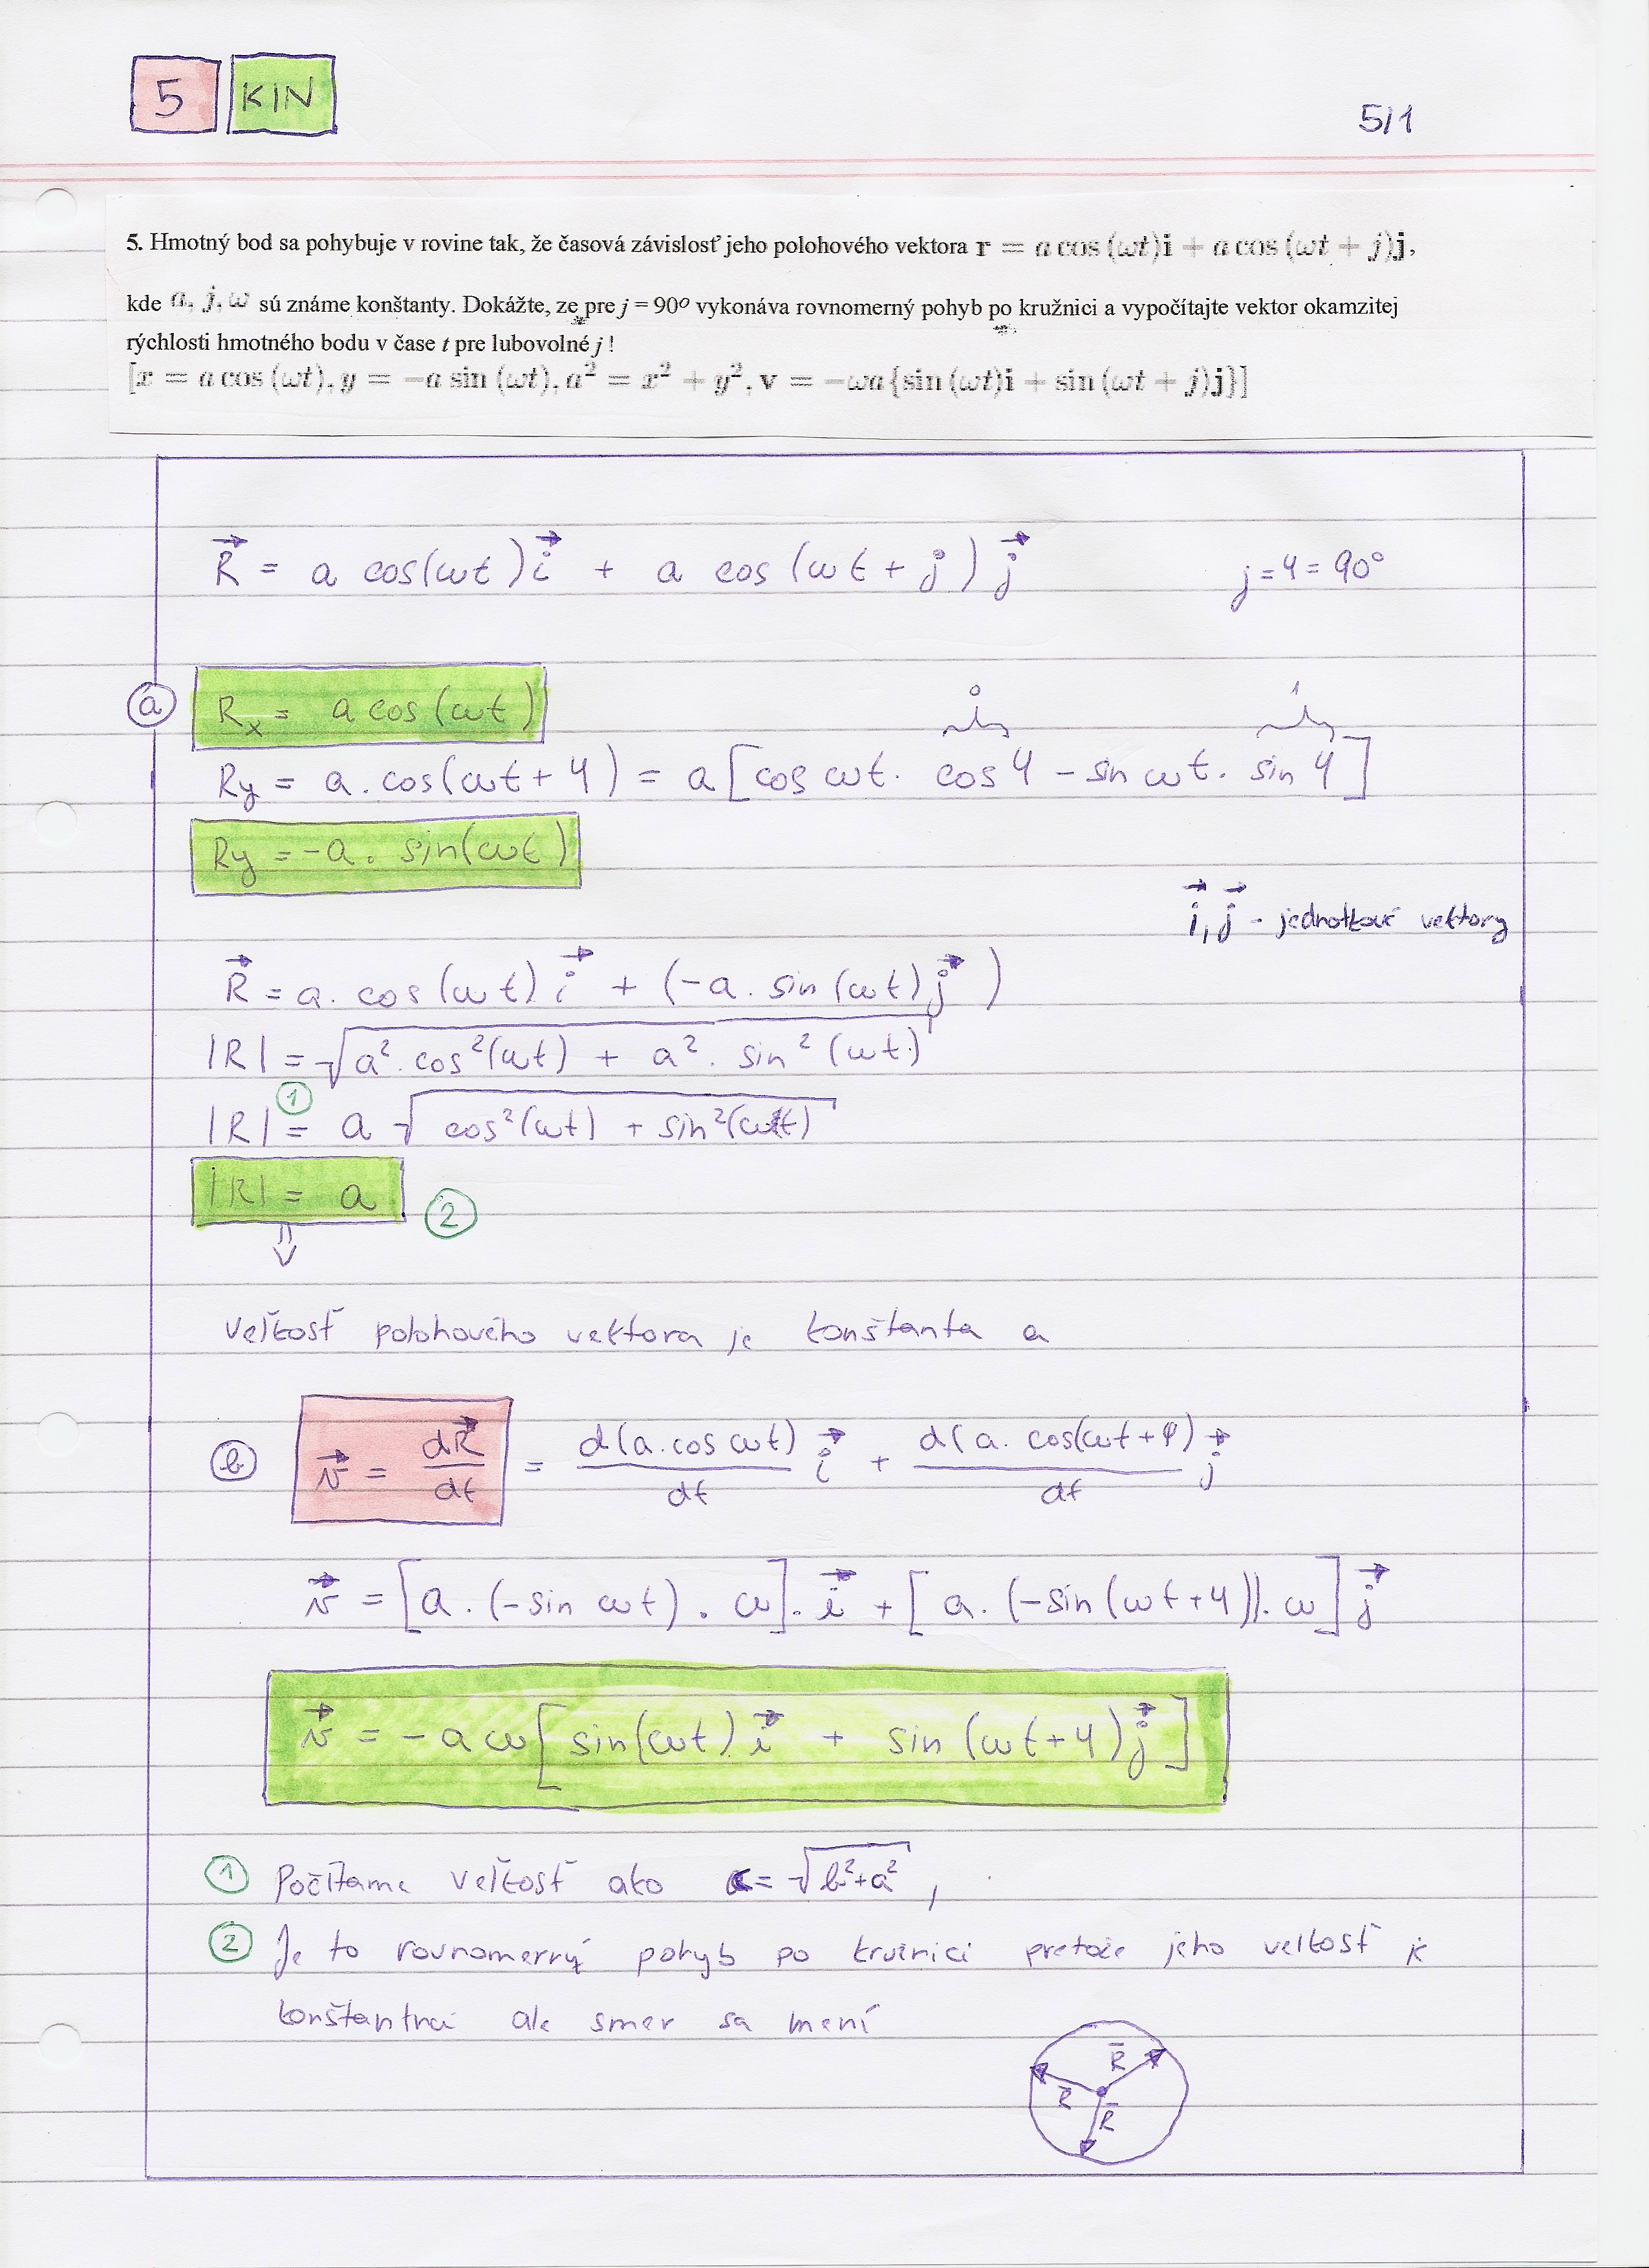 5 KIN
5/1
5. Hmotný bod sa pohybuje v rovine tak, že časová závislosť jeho polohového vektora r = a cos (ωt)i + a cos (ωt + j)j,
kde a, j, ω sú známe konštanty. Dokážte, ze pre j = 90º vykonáva rovnomerný pohyb po kružnici a vypočítajte vektor okamzitej
rýchlosti hmotného bodu v čase t pre lubovolné j !
[x = a cos (ωt), y = −a sin (ωt), a² = x² + y², v = −ωa{sin (ωt)i + sin (ωt + j)j}]
R⃗ = a cos(ωt) i⃗ + a cos (ωt + j) j⃗
j = φ = 90°
a Rx = a cos(ωt)
0 1
Ry = a . cos(ωt + φ) = a [cos ωt . cos φ − sin ωt . sin φ]
Ry = −a . sin(ωt)
i⃗, j⃗ - jednotkové vektory
R⃗ = a . cos(ωt) i⃗ + (−a . sin(ωt) j⃗ )
|R| = √(a² . cos²(ωt) + a² . sin²(ωt))
|R| = a √(cos²(ωt) + sin²(ωt))
1
|R| = a
2
⇓
veľkosť polohového vektora je konštanta a
b v⃗ = dR⃗/dt = d(a . cos ωt)/dt i⃗ + d(a . cos(ωt + φ)/dt j⃗
v⃗ = [a . (−sin ωt) . ω] . i⃗ + [a . (−sin(ωt + φ)) . ω] j⃗
v⃗ = −a ω [sin(ωt) . i⃗ + sin (ωt + φ) j⃗ ]
1 Počítame veľkosť ako c = √(b² + a²) ,
2 Je to rovnomerný pohyb po kružnici pretože jeho veľkosť je
konštantná ale smer sa mení
R R R